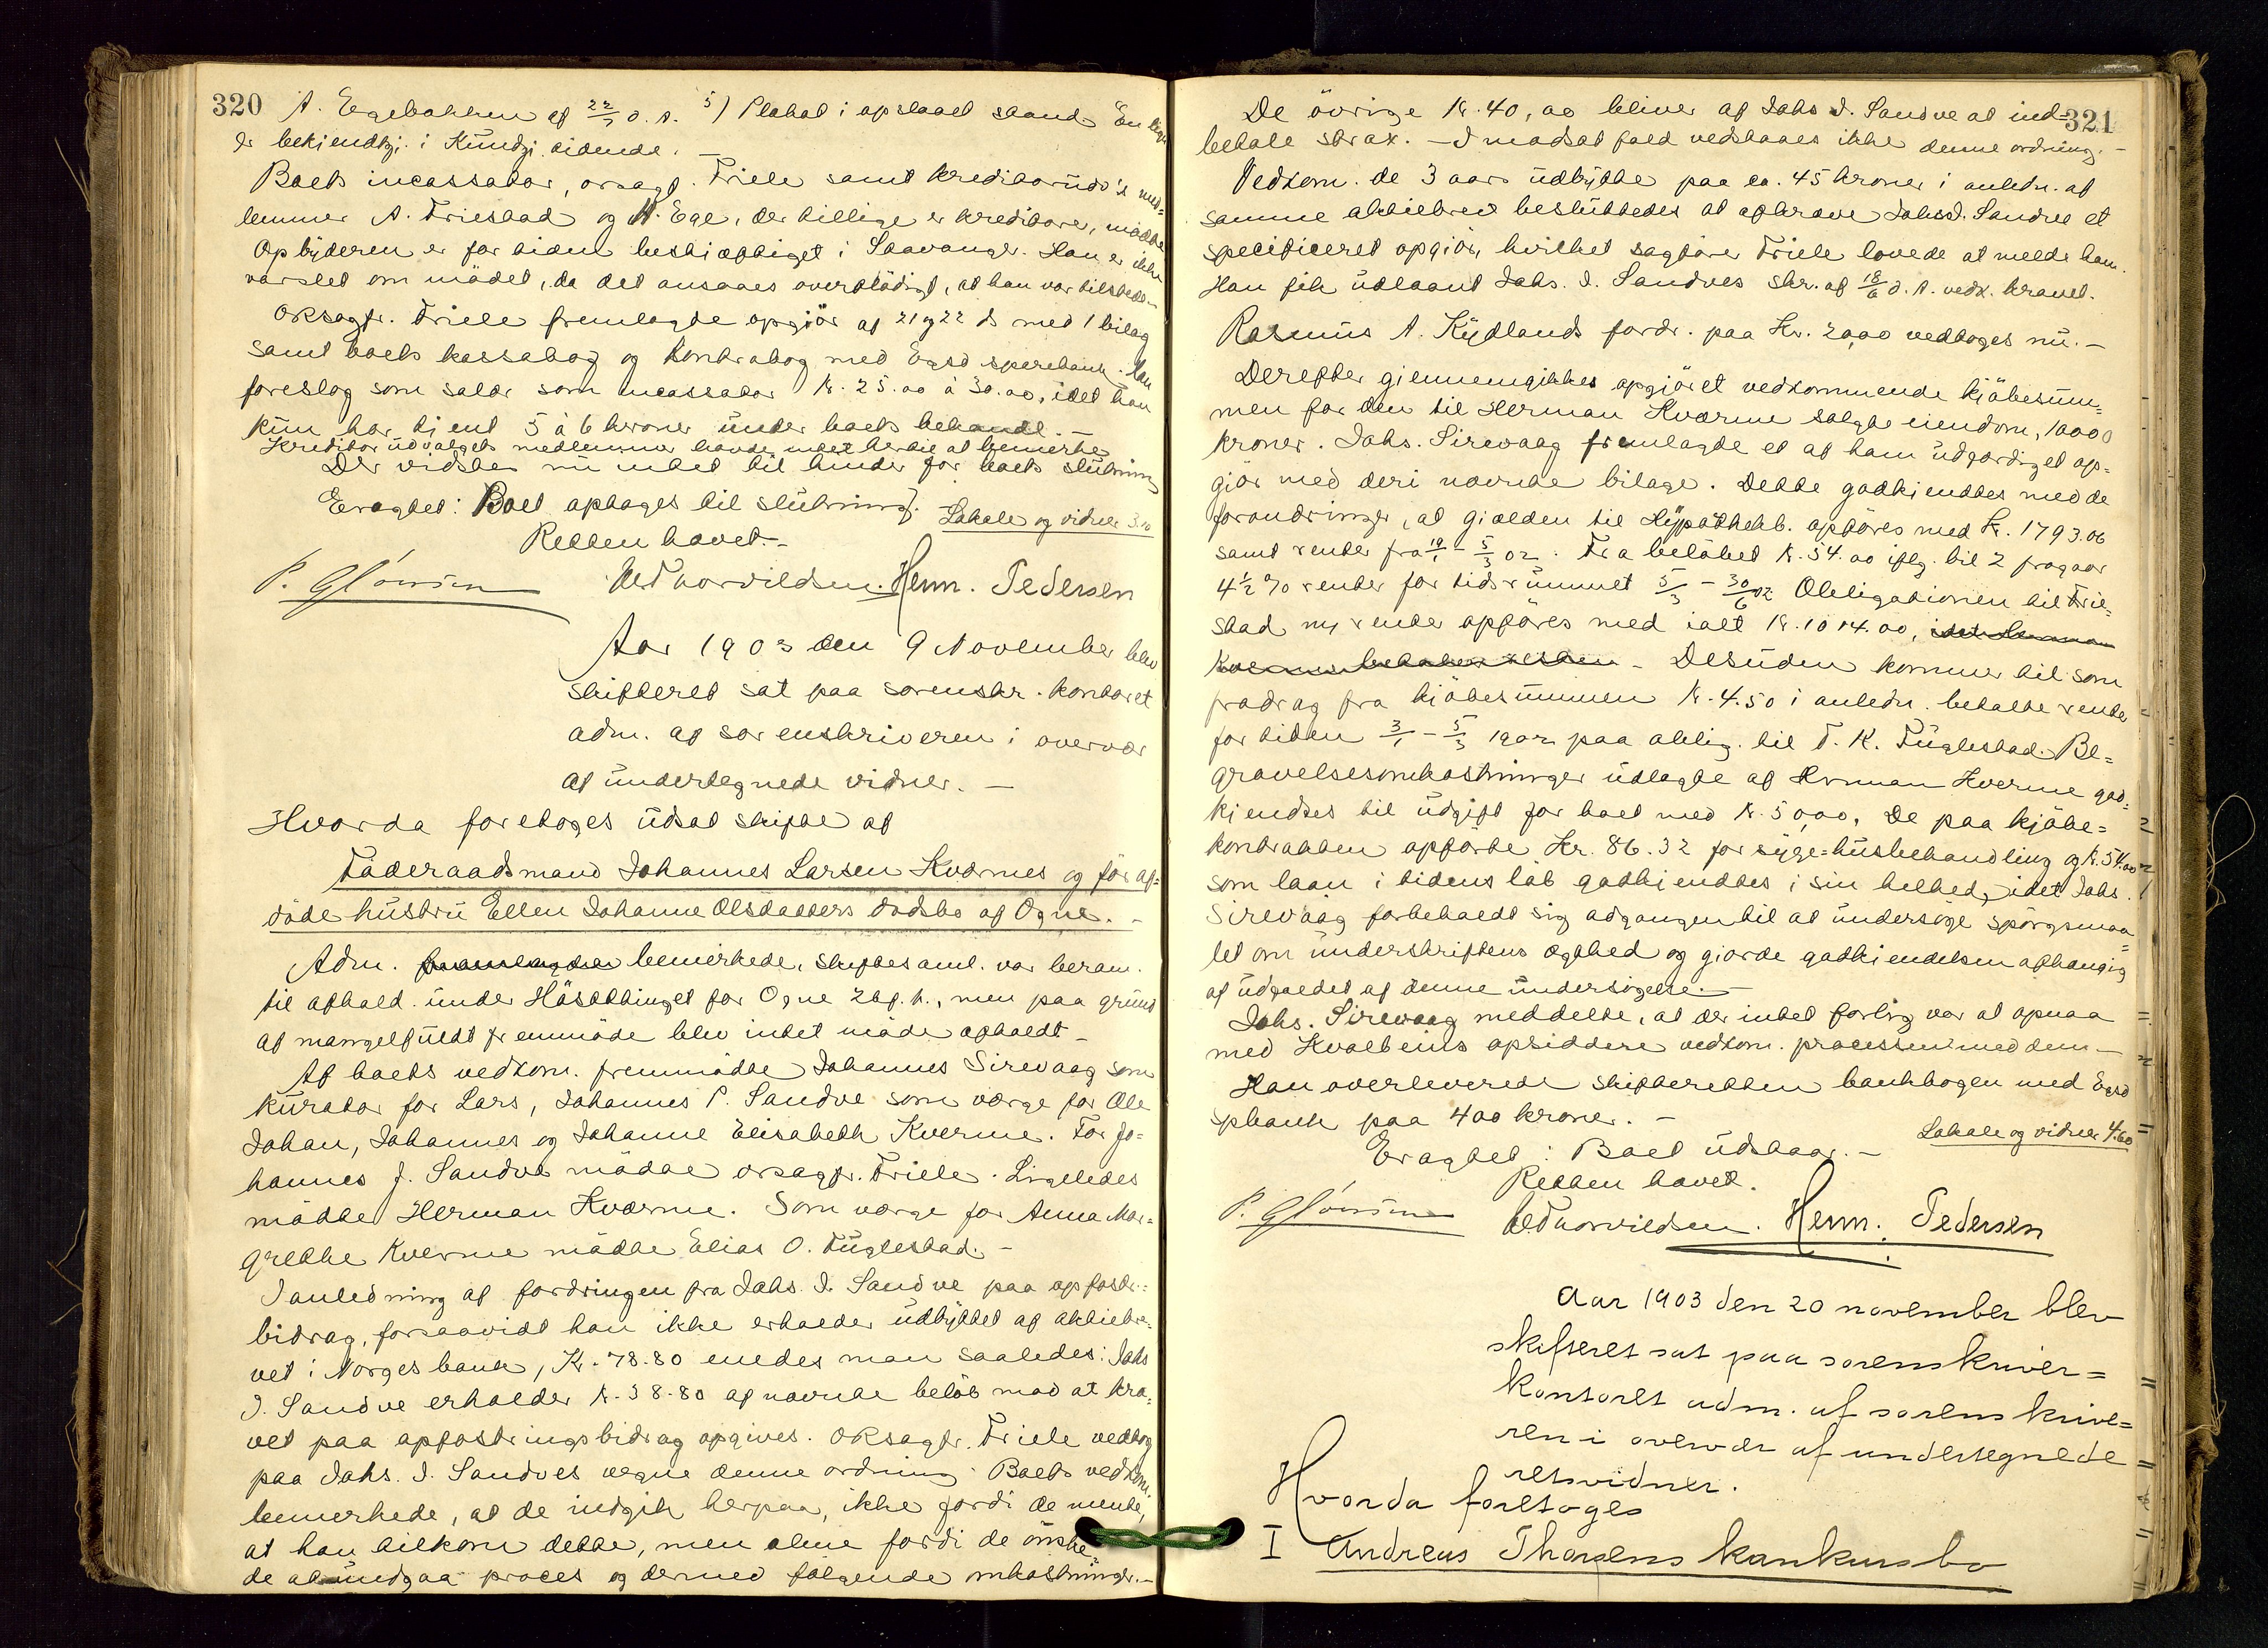 320
A. Eegebakken af 22/7 d. A. 5) Plakat i opslaaet stand. En lige
dr bekjendtgj. i Kundgj. tidende. —
Boets incassator, orsagf. Friele samt kreditorudv's med=
lemmer A. Friestad og M. Ege, der tillige er kreditore, mødte
Opbyderen er for tiden beskjæftiget i Stavanger. Han er ikke
varslet om mødet, da det ansaaes overflødigt, at han var tilstede.—
ORsagfr. Friele fremlagde opgjør af 21 og 22 ds med 1 bilag
samt boets kassabog og kontrabog med Egsd sparebank. Han
foreslog som salær som incassator Kr. 25.00 à 30.00, idet han
kun har tjent 5 à 6 kroner under boets behandl. —
Kreditorudvalgets medlemmer havde intet hertil at bemerke
Der vidstes nu intet til hinder for boets slutning
Eragtet: Boet optages til slutning.
Lokale og vidner 3.10
Retten hævet.—
P. Glørsen M Thorvildsen. Herm. Pedersen
Aar 1903 den 9 November blev
skifteret sat paa sorenskr. kontoret
adm. af sorenskriveren i overvær
af undertegnede vidner. —
Hvorda foretoges udsat skifte af
Føderaadsmand Johannes Larsen Kværnes og før af=
døde hustru Ellen Johanne Olsdatters dødsbo af Ogne. —
Adm. fremlagde bemerkede, skiftesaml. var beram.
til afhold. under Høstthinget for Ogne 2 bg. h., men paa grund
af mangelfuldt fremmøde blev intet møde afholdt —
Af boets vedkom. fremmødte Johannes Sirevaag som
kurator for Lars, Johannes P. Sandve som værge for Ole
Johan, Johannes og Johanne Elisabeth Kverme. For Jo=
hannes J. Sandve mødte orsagfr. Friele. Ligeledes
mødte Herman Kværme. Som værge for Anna Mar=
grethe Kverme mødte Elias O. Fuglestad. —
I anledning af fordringen fra Johs. J. Sandve paa opfostr.=
bidrag, forsaavidt han ikke erholder udbyttet af aktiebre=
vet i Norges bank, Kr. 78.80 enedes man saaledes: Johs
J. Sandve erholder Kr. 38.80 af nævnte beløb mod at kra=
vet paa opfostringsbidrag opgives. ORsagfr. Friele vedtog
paa Johs. J. Sandves vegne denne ordning. Boets vedkom.
bemerkede, at de indgik herpaa, ikke fordi de mente,
at han tilkom dette, men alene fordi de ønske
de at undgaa proces og dermed følgende omkostninger.—
321
De øvrige Kr. 40,00 bliver af Johs J. Sandve at ind=
betale strax. — I modsat fald vedstaaes ikke denne ordning. —
Vedkom. de 3 aars udbytte paa ca. 45 kroner i anledn. af
samme aktiebrev besluttedes at afkræve Johs J. Sandve et
specificeret opgjør, hvilket sagfører Friele lovede at melde ham.
Han fik udlaant Johs. J. Sandves skr. af 18/6 d. A. vedk. kravet.
Rasmus A. Kydlands fordr. paa Kr. 20,00 vedtoges nu. —
Derefter gjennemgikkes opgjøret vedkommende kjøbesum=
men for den til Herman Kværme solgte eiendom, 10000
kroner. Johs. Sirevaag fremlagde et af ham udfærdiget op=
gjør med deri nævnte bilage. Dette godkjendtes med de
forandringer, at gjælden til Hypothekb. opføres med Kr. 1793.06
samt renter fra 19/1 – 5/3 02. Fra beløbet Kr. 54.00 iflg. bil 2 fragaar
4½ % renter for tidsrummet 5/3 – 30/6 02 Obligationen til Frie=
stad m. renter opføres med ialt Kr. 1014.00, idet Herman
Kværme betaler resten — Desuden kommer til som
fradrag fra kjøbesummen Kr. 4.50 i anledn. betalte renter
for tiden 3/1 – 5/3 1902 paa oblig. til T. K. Fuglestad. Be=
gravelsesomkostninger udlagte af Herman Kverme god=
kjendtes til udgift for boet med Kr. 50,00. De paa kjøbe=
kontrakten opførte Kr. 86.32 for syge=husbehandling og Kr. 54.00
som laan i tidens løb godkjendtes i sin helhed, idet Johs.
Sirevaag forbeholdt sig adgangen til at undersøge spørgsmaa=
let om underskriftens ægthed og gjorde godkjendelsen afhængig
af udfaldet af denne undersøgelse. —
Johs. Sirevaag meddelte, at der intet forlig var at opnaa
med Kvalbeins opsiddere vedkom. processen med dem —
Han overleverede skifteretten bankbogen med Egsd
spbank paa 400 kroner. —
Lokale og vidner 4.60
Eragtet: Boet udstaar. —
Retten hævet.
P. Glørsen M Thorvildsen. Herm. Pedersen
Aar 1903 den 20 november blev
skifteret sat paa sorenskriver=
kontoret adm. af sorenskrive=
ren i overvær af undertegnede
retsvidner.
Hvorda foretoges
I Andreas Thorsens konkursbo